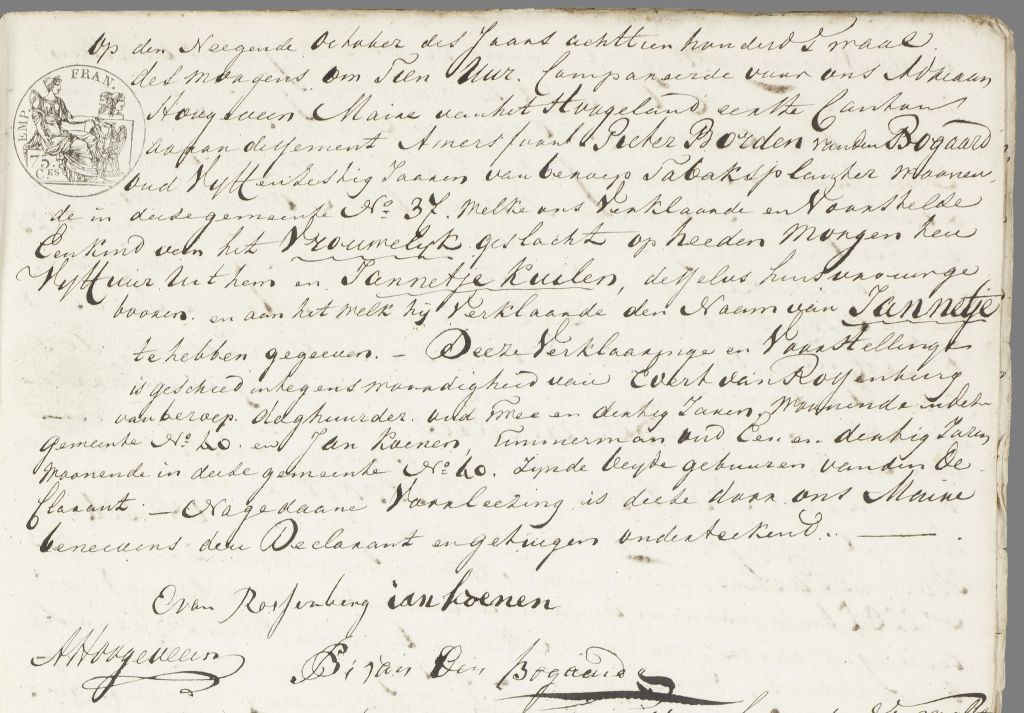 op den Neegende October des Jaars achttien honderd Twaal
des morgens om Tien Uur. Compareerde voor ons Adriaan
EMP. FRAN.
75 CES
Hoogeveen Maire van het Hoogeland eerste Canton
aarandissement Amersfoort Pieter Borden van den Bogaard
oud Vyftenzestig Jaaren van beroep Tabaksplanter woonen-
de in deese gemeente No. 37. Welke ons Verklaarde en Voorstelde
Een kind van het Vrouwelyk geslacht op heeden Morgen ten
Vyff uur uit hem en Jannetje kuilen, desselvs huisvrouwe ge
booren. en aan het welk hij Verklaarde den Naam van Jannetje
te hebben gegeeven. – Deeze Verklaaringe en Voorstellinge
is geschied in tegenswoordigheid van Evert van Rossenburg
van beroep. daghuurder. oud Twee en dertig Jaren, woonende in deese
gemeente No. 40. en Jan koenen, Timmerman oud Een en dertig Jaren
woonende in deese gemeente No. 40. Zynde beyde gebuuren van den De
Clarant. – Nagedaane Voorleezing is deese door ons Maire
beneevens den Declarant en getuigen onderteekend. –
E van Rossenberg ian koenen
A Hoogeveen P: B: van Den Bogaard